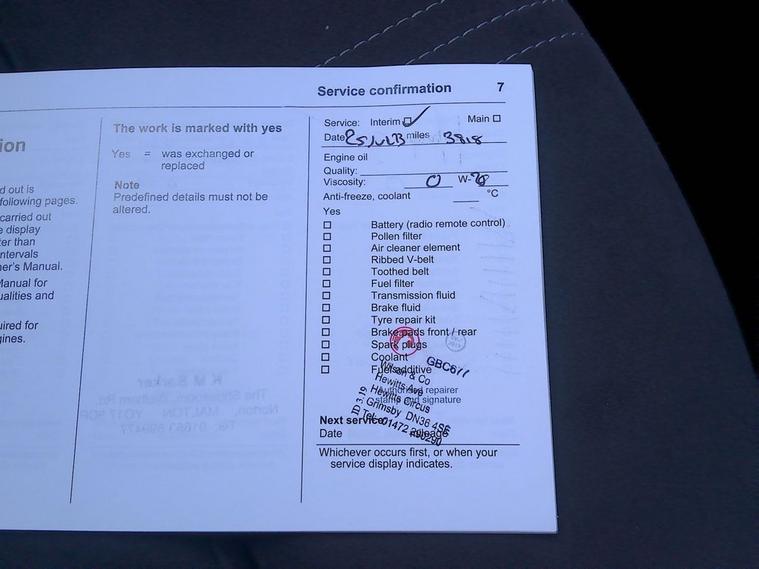 Service confirmation 7
ion
d out is
following pages.
carried out
e display
ter than
ntervals
er's Manual.
Manual for
ualities and
uired for
gines.
The work is marked with yes
Yes = was exchanged or
replaced
Note
Predefined details must not be
altered.
Service: Interim Main
Date miles 3818
Engine oil
Quality:
Viscosity: 0 W-
Anti-freeze, coolant °C
Yes
Battery (radio remote control)
Pollen filter
Air cleaner element
Ribbed V-belt
Toothed belt
Fuel filter
Transmission fluid
Brake fluid
Tyre repair kit
Brake pads front / rear
Spark plugs
Coolant
Fuel additive
GBC677
Wilson & Co
Hewitts Ave
Hewitts Circus
Grimsby DN36 4SE
Tel: 01472
ID 3.19
Authorised repairer
stamp and signature
Next service
Date mileage
Whichever occurs first, or when your
service display indicates.